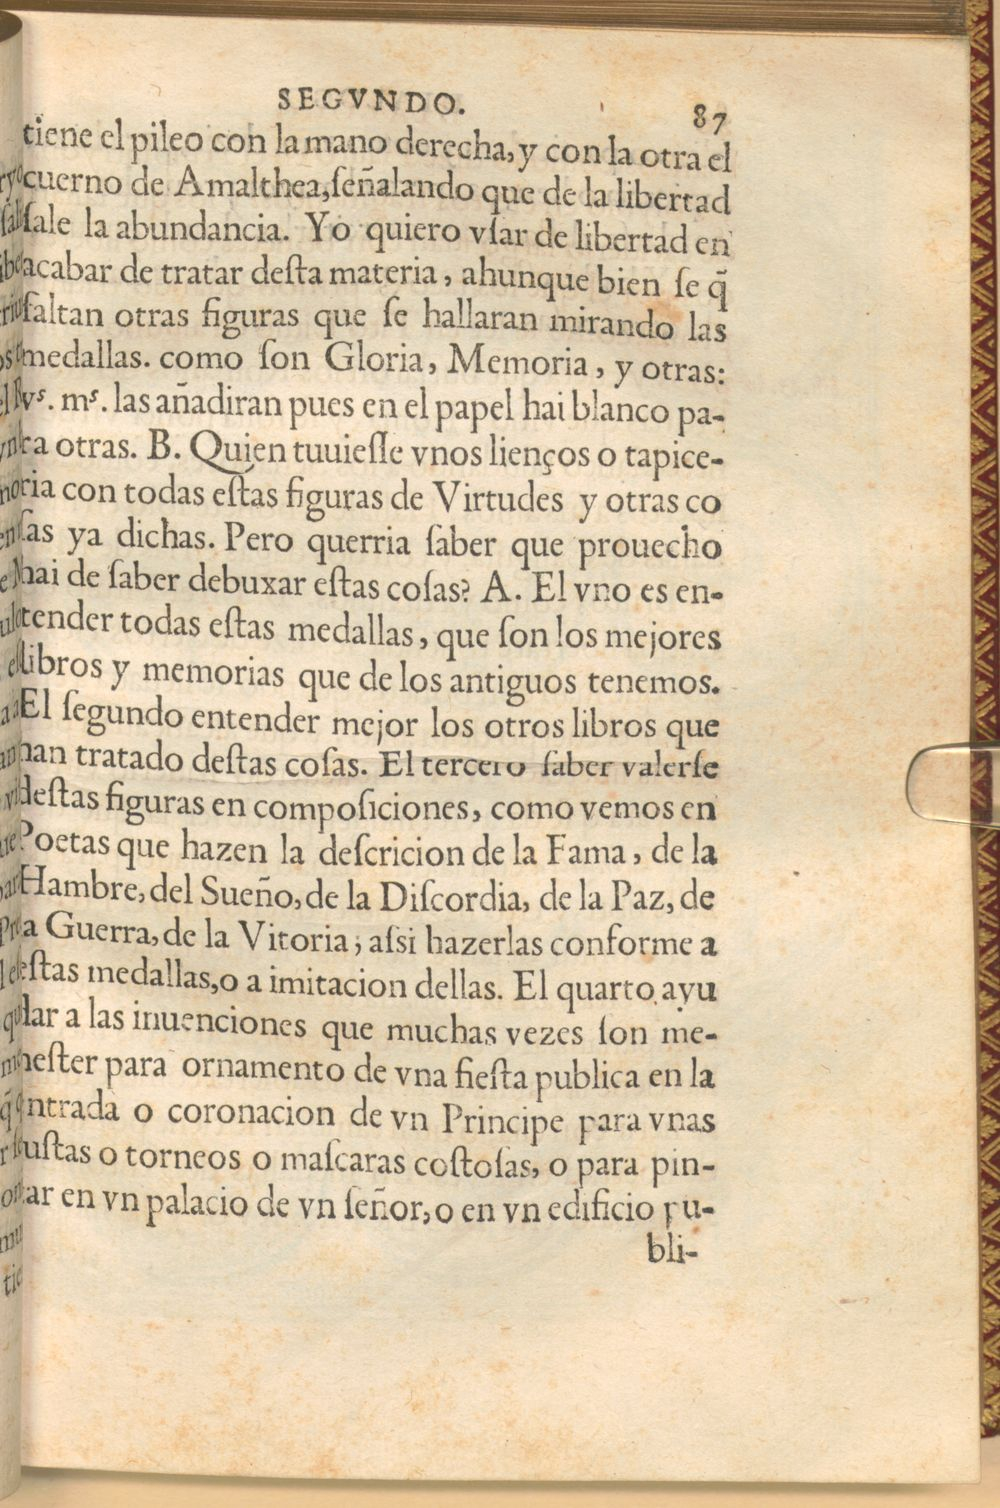 SEGVNDO. 87
tiene el pileo con la mano derecha, y con la otra el
cuerno de Amalthea, ſeñalando que de la libertad
ſale la abundancia. Yo quiero vſar de libertad en
acabar de tratar deſta materia, ahunque bien ſe q̃
faltan otras figuras que ſe hallaran mirando las
medallas. como ſon Gloria, Memoria, y otras:
vˢ. mˢ. las añadiran pues en el papel hai blanco pa-
ra otras. B. Quien tuuieſſe vnos lienços o tapice-
ria con todas eſtas figuras de Virtudes y otras co
ſas ya dichas. Pero querria ſaber que prouecho
hai de ſaber debuxar eſtas coſas? A. El vno es en-
tender todas eſtas medallas, que ſon los mejores
libros y memorias que de los antiguos tenemos.
El ſegundo entender mejor los otros libros que
han tratado deſtas coſas. El tercero ſaber valerſe
deſtas figuras en compoſiciones, como vemos en
Poetas que hazen la deſcricion de la Fama, de la
Hambre, del Sueño, de la Diſcordia, de la Paz, de
a Guerra, de la Vitoria, aſsi hazerlas conforme a
eſtas medallas, o a imitacion dellas. El quarto ayu
dar a las inuenciones que muchas vezes ſon me-
neſter para ornamento de vna fieſta publica en la
entrada o coronacion de vn Principe para vnas
uſtas o torneos o maſcaras coſtoſas, o para pin-
tar en vn palacio de vn ſeñor, o en vn edificio pu-
bli-